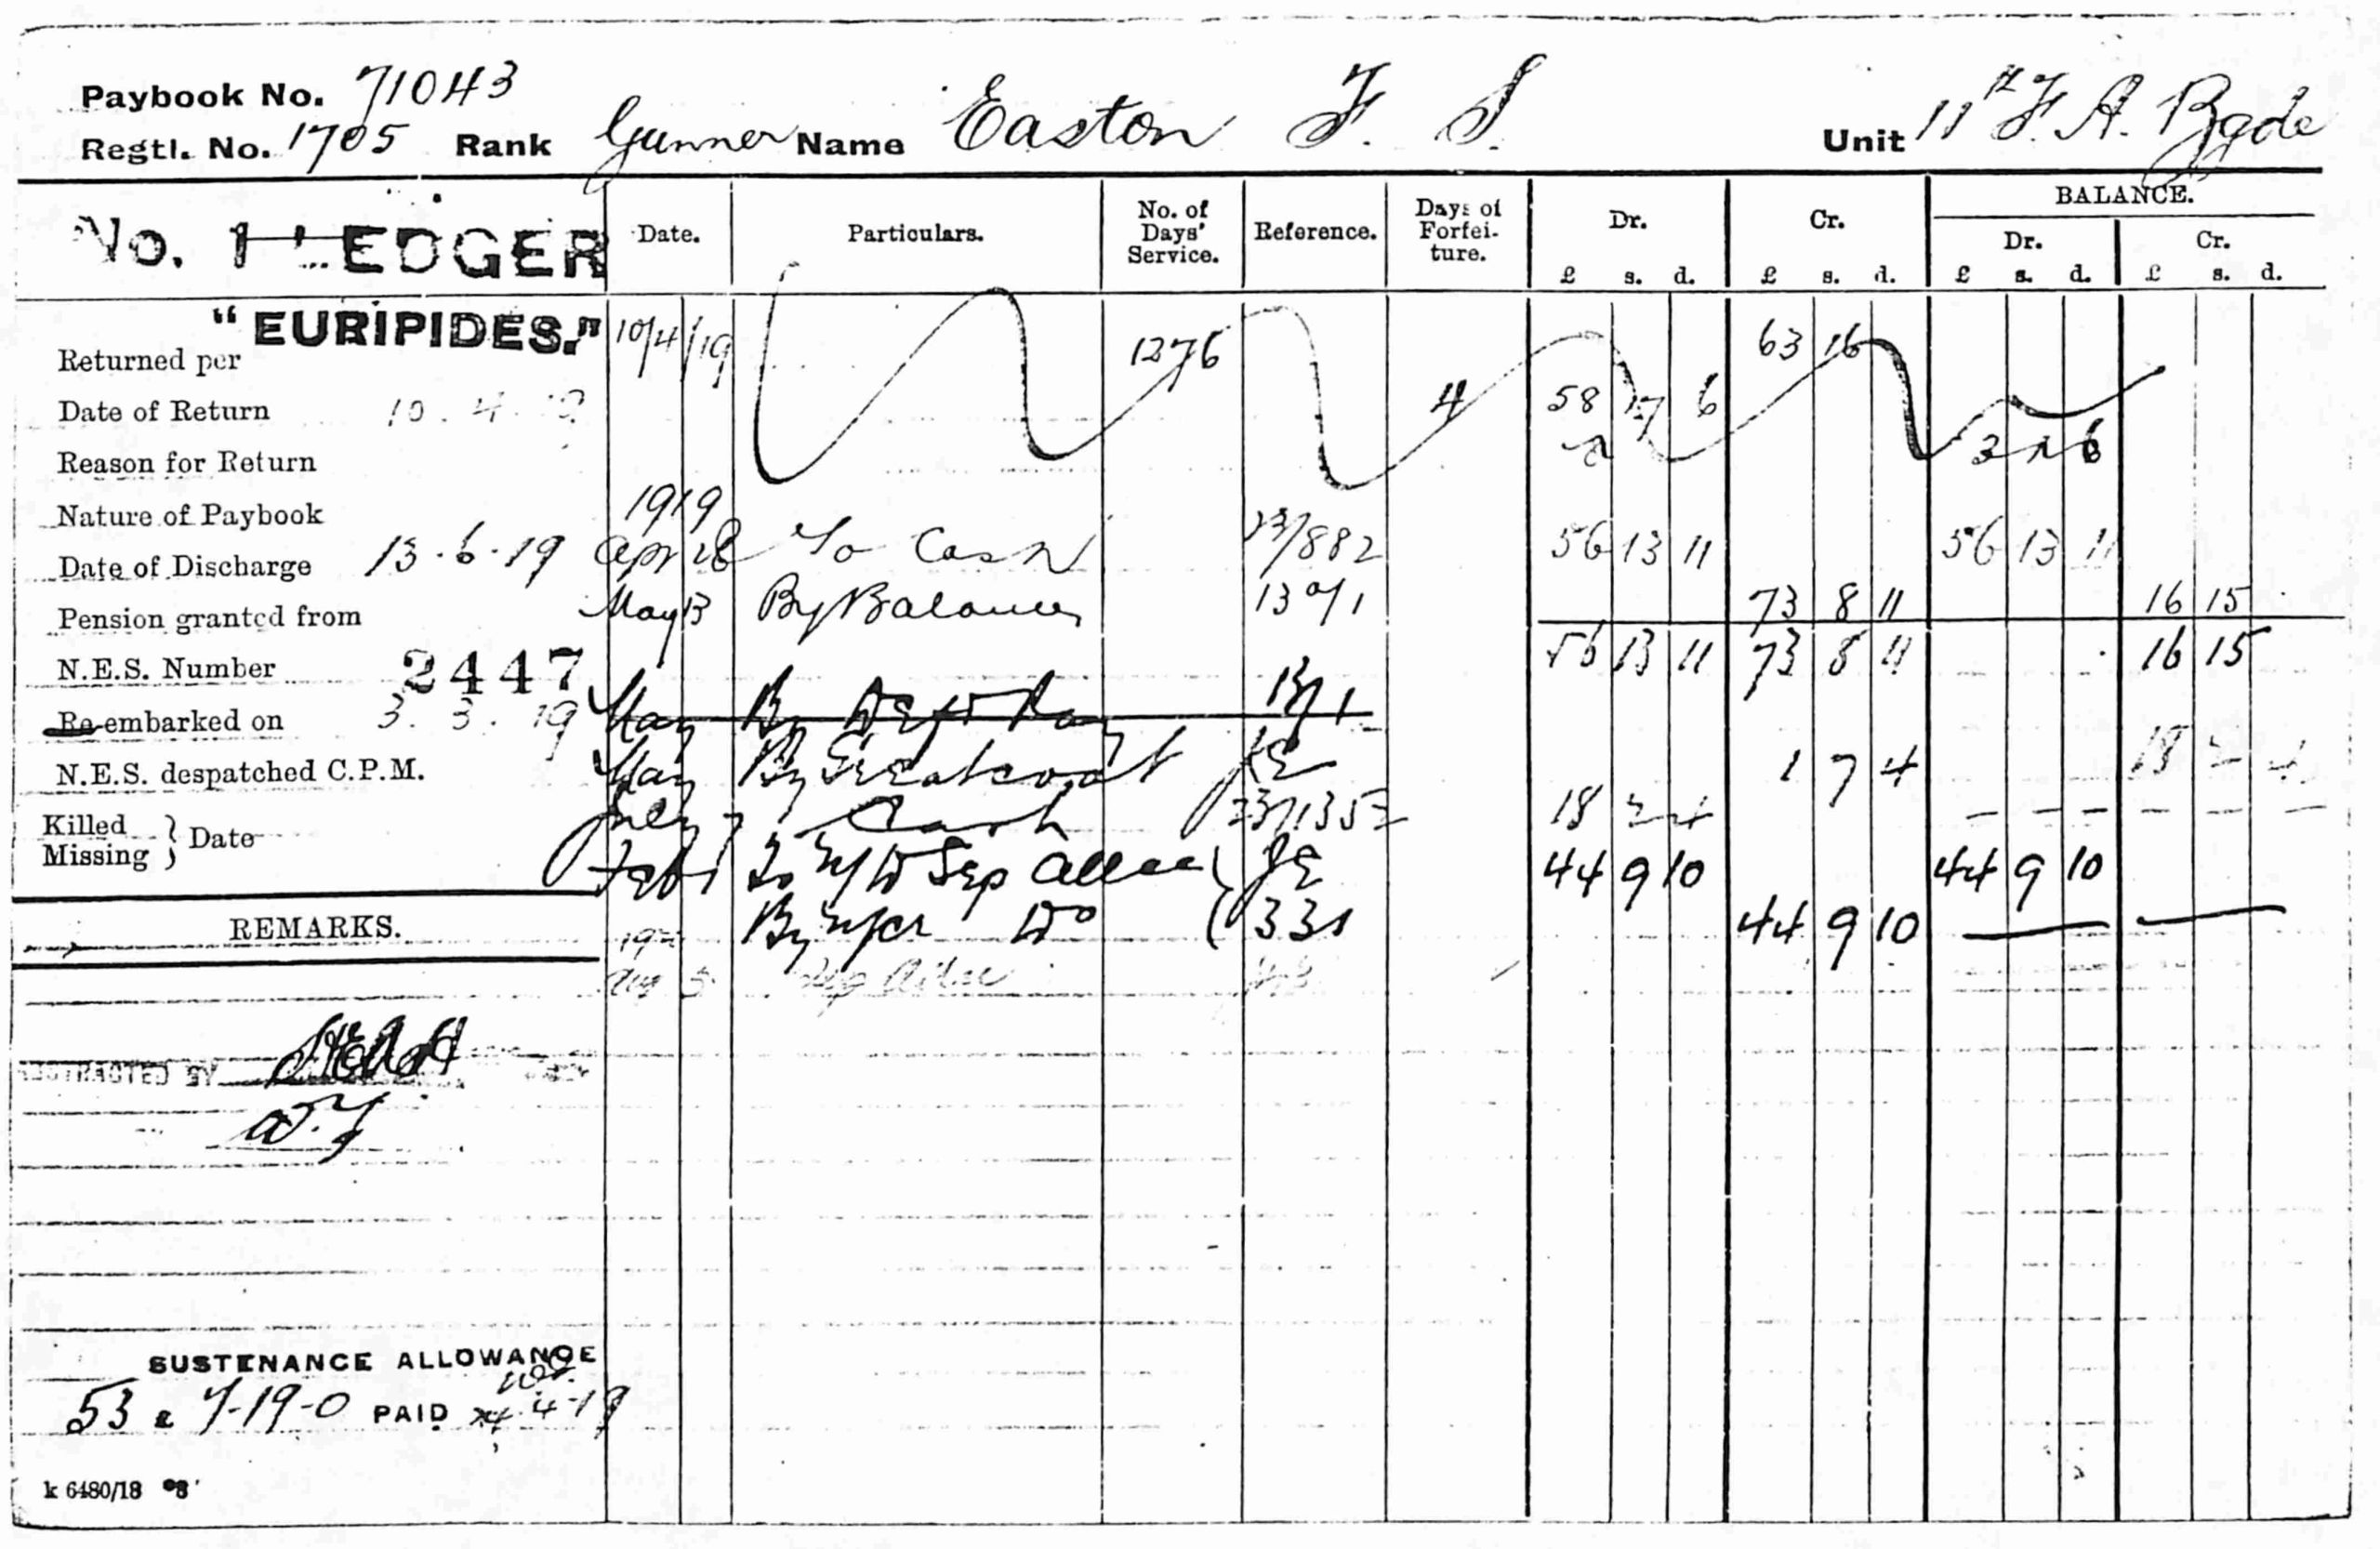 Paybook No. 71043
Regtl. No. 1705 Rank Gunner Name Easton F. S. Unit 11th F. A. Bgde
No. 1 LEDGER Date. Particulars. No. of Days' Service. Reference. Days of Forfei-ture. Dr. £ s. d. Cr. £ s. d. BALANCE. Dr. £ s. d. Cr. £ s. d.
"EURIPIDES." 10/4/19 1276 63 16
Returned per
4 58 17 6
Date of Return 10. 4. 19
Reason for Return
1919
Nature of Paybook
Date of Discharge 13.6.19 Apr 28 To Cash 23/882 56 13 11 56 13 11
Pension granted from May 13 By Balance 130/1 73 8 11 16 15
N.E.S. Number 2447 56 13 11 73 8 11 16 15
Re-embarked on 3. 3. 19 May By Defd Pay 13/1
N.E.S. despatched C.P.M. May By Greatcoat JE 1 7 4 18 2 4
Killed Missing } Date July 7 Cash 23/1352 18 2 4 — — — — — —
Feb 1 To Sep Allce JE 44 9 10 44 9 10
REMARKS. By Do 331 44 9 10
Aug 5
SUSTENANCE ALLOWANCE
53 7-19-0 PAID 4-19
k 6480/18